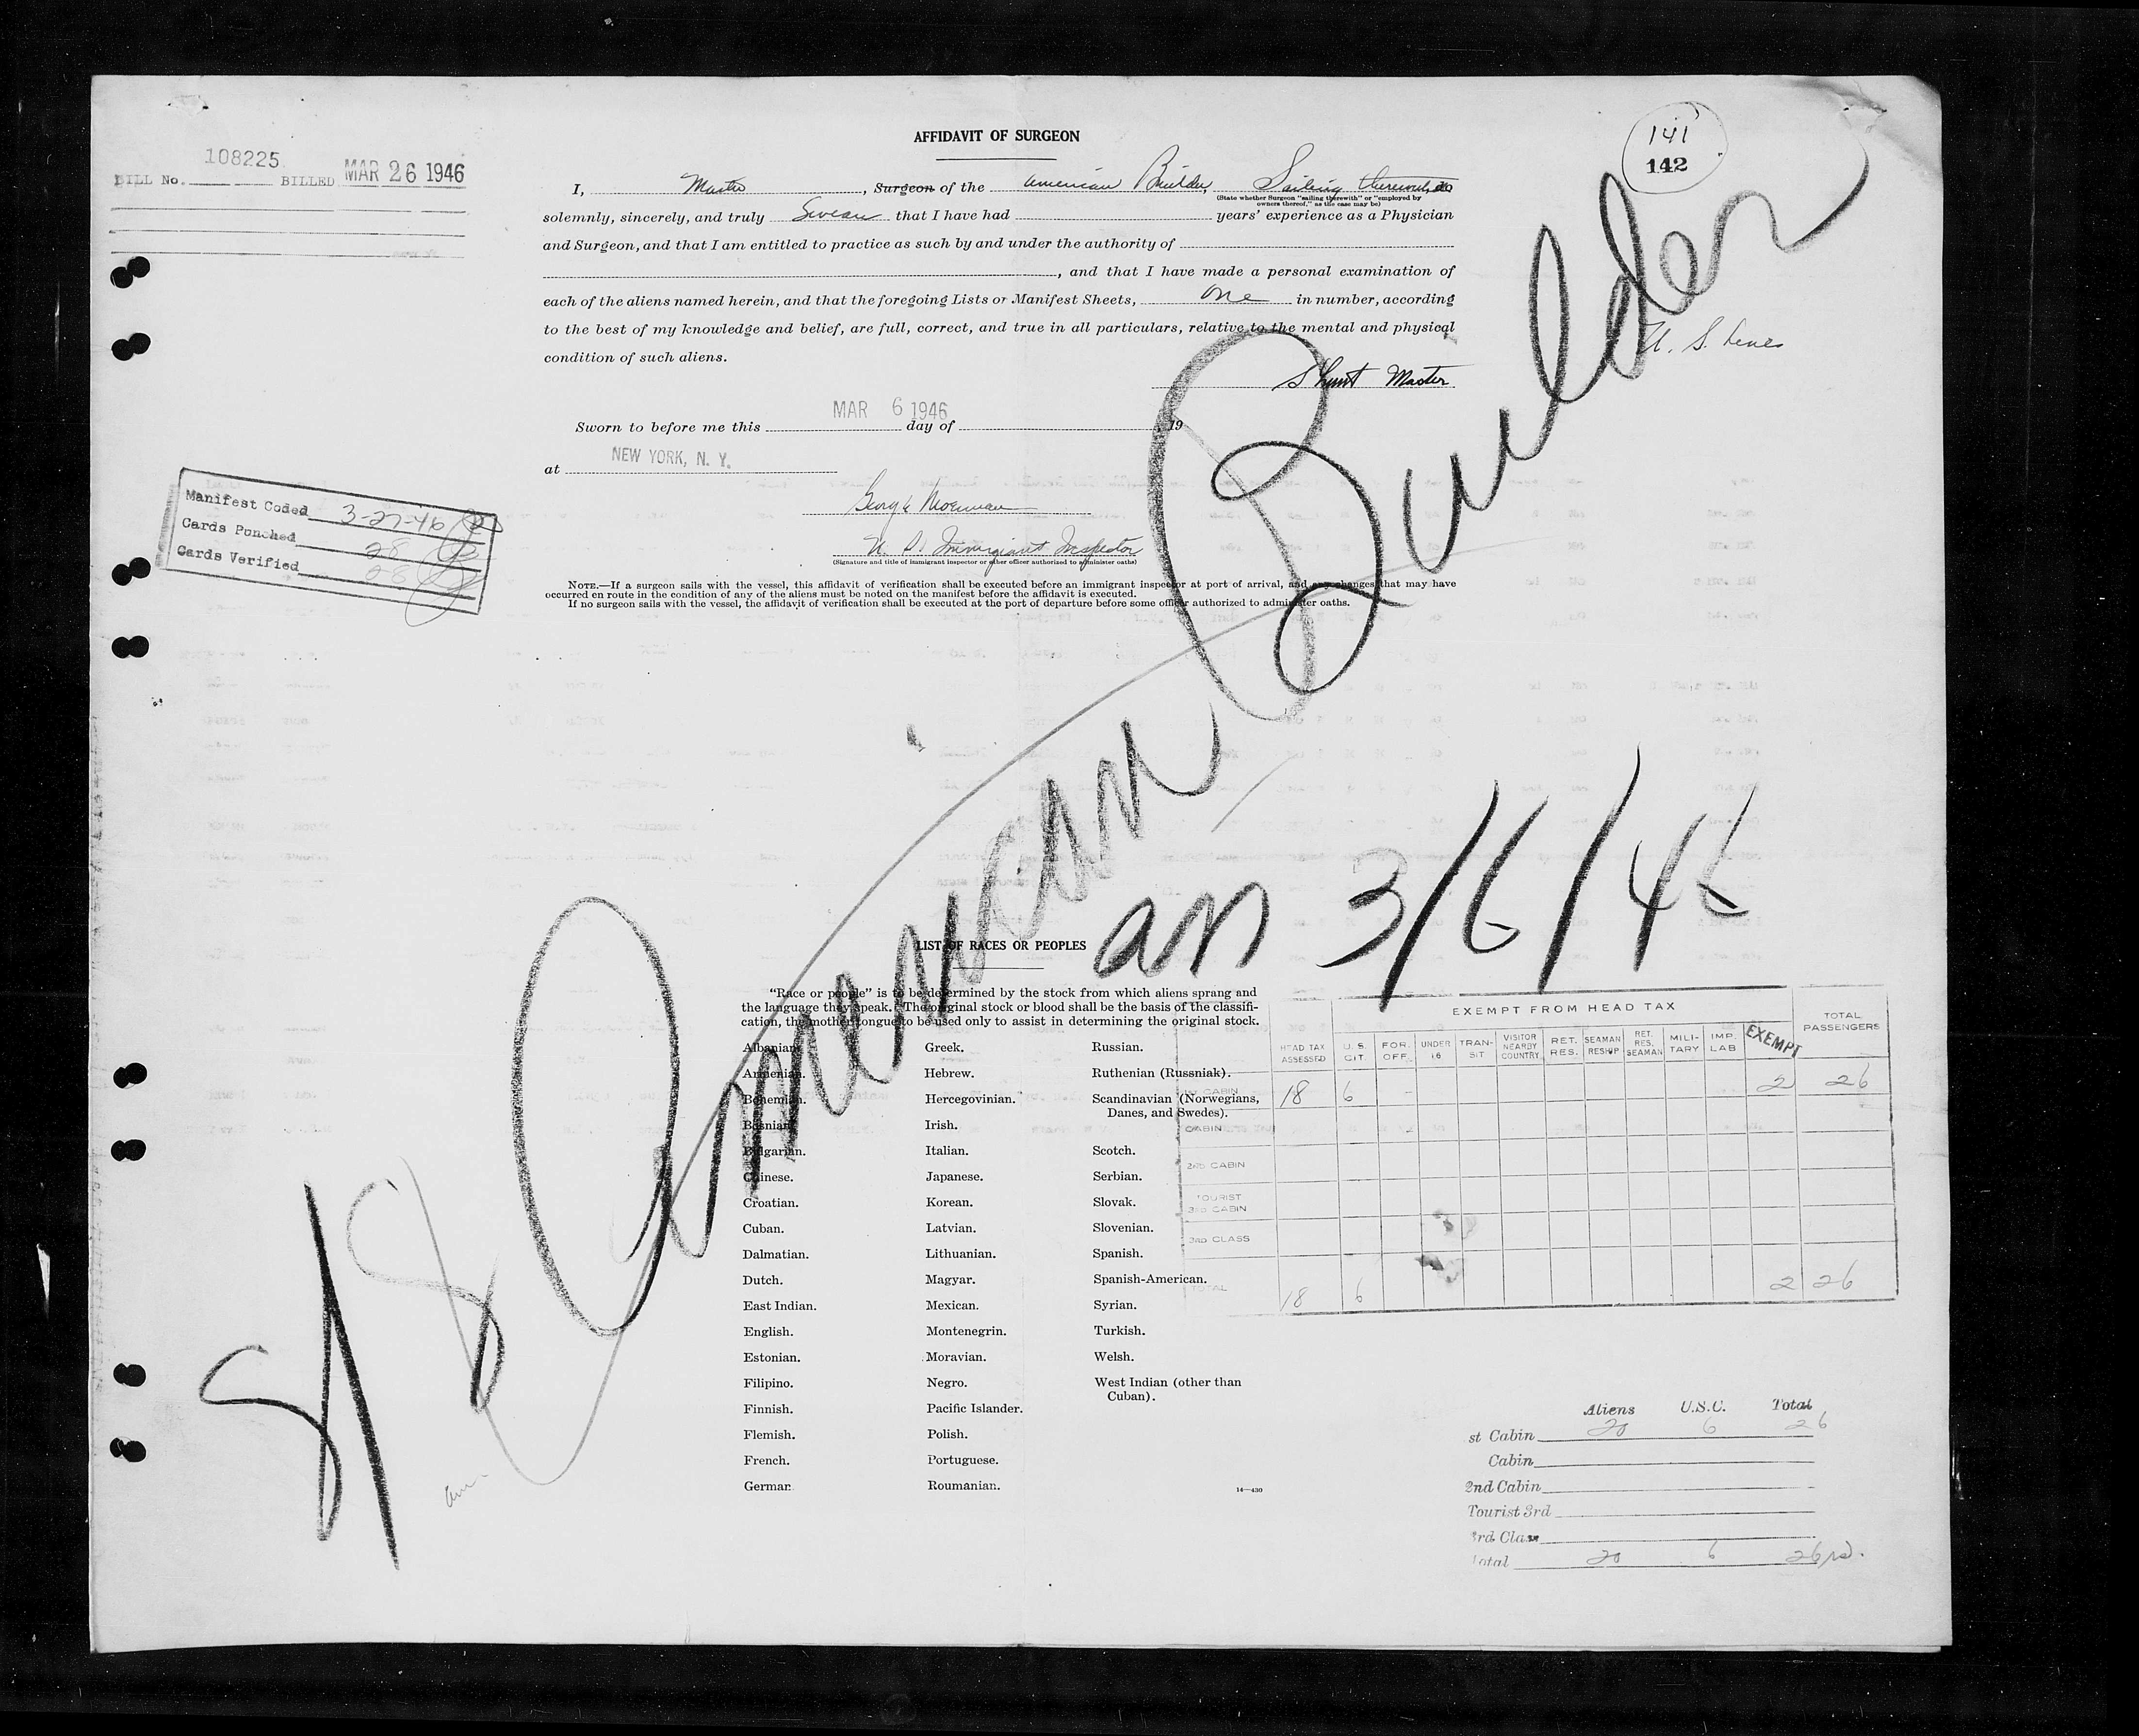 AFFIDAVIT OF SURGEON
141
142
108225
BILL No. BILLED MAR 26 1946
I, Master, Surgeon of the American Builder, Sailing therewith, do
(State whether Surgeon "sailing therewith" or "employed by
owners thereof," as the case may be)
solemnly, sincerely, and truly Swear that I have had years' experience as a Physician
and Surgeon, and that I am entitled to practice as such by and under the authority of
, and that I have made a personal examination of
each of the aliens named herein, and that the foregoing Lists or Manifest Sheets, One in number, according
to the best of my knowledge and belief, are full, correct, and true in all particulars, relative to the mental and physical
condition of such aliens.
U. S. Lines
Master
MAR 6 1946
Sworn to before me this day of , 19
at NEW YORK, N. Y.
George
U. S. Immigrant Inspector
(Signature and title of immigrant inspector or other officer authorized to administer oaths)
Manifest Coded 3-27-46
Cards Punched 28
Cards Verified 28
NOTE.—If a surgeon sails with the vessel, this affidavit of verification shall be executed before an immigrant inspector at port of arrival, and any changes that may have
occurred en route in the condition of any of the aliens must be noted on the manifest before the affidavit is executed.
If no surgeon sails with the vessel, the affidavit of verification shall be executed at the port of departure before some officer authorized to administer oaths.
S/S American Builder
arr 3/6/46
LIST OF RACES OR PEOPLES
"Race or people" is to be determined by the stock from which aliens sprang and
the language they speak. The original stock or blood shall be the basis of the classifi-
cation, the mother tongue to be used only to assist in determining the original stock.
Albanian.
Armenian.
Bohemian.
Bosnian.
Bulgarian.
Chinese.
Croatian.
Cuban.
Dalmatian.
Dutch.
East Indian.
English.
Estonian.
Filipino.
Finnish.
Flemish.
French.
German.
Greek.
Hebrew.
Hercegovinian.
Irish.
Italian.
Japanese.
Korean.
Latvian.
Lithuanian.
Magyar.
Mexican.
Montenegrin.
Moravian.
Negro.
Pacific Islander.
Polish.
Portuguese.
Roumanian.
Russian.
Ruthenian (Russniak).
Scandinavian (Norwegians,
Danes, and Swedes).
Scotch.
Serbian.
Slovak.
Slovenian.
Spanish.
Spanish-American.
Syrian.
Turkish.
Welsh.
West Indian (other than
Cuban).
14—430
EXEMPT FROM HEAD TAX
HEAD TAX ASSESSED U. S. CIT. FOR. OFF. UNDER 16 TRAN-SIT VISITOR NEARBY COUNTRY RET. RES. SEAMAN RESHIP RET. RES. SEAMAN MILI-TARY IMP. LAB EXEMPT TOTAL PASSENGERS
1st CABIN 18 6 2 26
CABIN
2ND CABIN
TOURIST
3RD CABIN
3RD CLASS
TOTAL 18 6 2 26
Aliens U.S.C. Total
st Cabin 20 6 26
Cabin
2nd Cabin
Tourist 3rd
3rd Class
Total 20 6 26